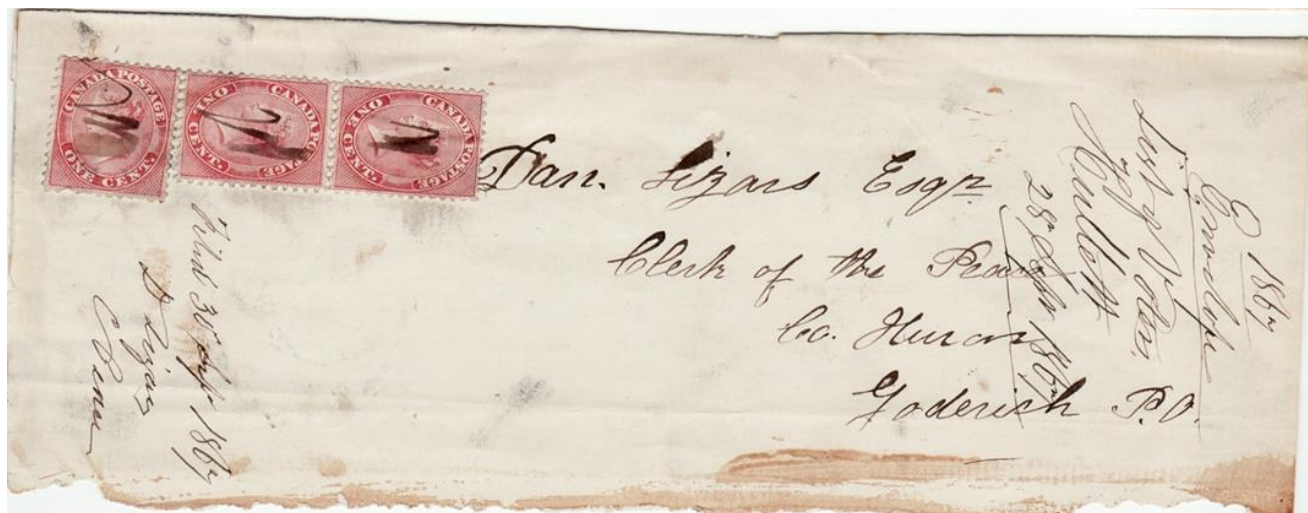 CANADA POSTAGE
ONE CENT.
CANADA POSTAGE
ONE CENT.
CANADA POSTAGE
ONE CENT.
Dan. Lizars Esqr.
Clerk of the Peace
Co. Huron
Goderich P.O.
Filed 30 Sept 1867
D Lizars
1867
Envelope
List of Voters
Hullett
28th Sept 1867